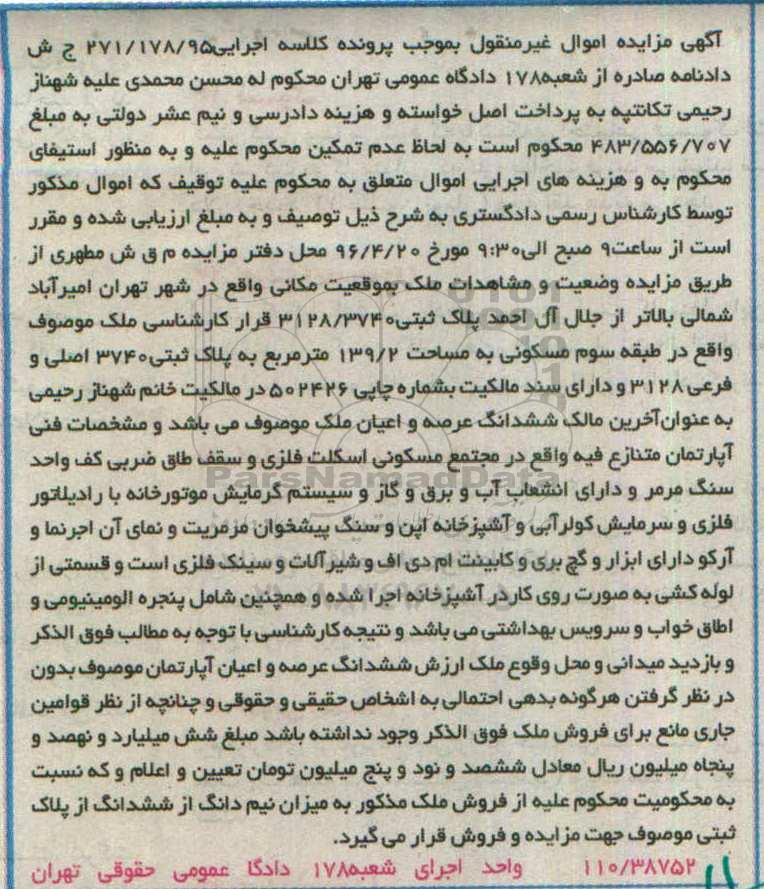 آگهی مزایده اموال غیرمنقول بموجب پرونده کلاسه اجرایی۲۷۱/۱۷۸/۹۵ ج ش
دادنامه صادره از شعبه۱۷۸ دادگاه عمومی تهران محکوم له محسن محمدی علیه شهناز
رحیمی تکانتپه به پرداخت اصل خواسته و هزینه دادرسی و نیم عشر دولتی به مبلغ
۴۸۳/۵۵۶/۷۰۷ محکوم است به لحاظ عدم تمکین محکوم علیه و به منظور استیفای
محکوم به و هزینه های اجرایی اموال متعلق به محکوم علیه توقیف که اموال مذکور
توسط کارشناس رسمی دادگستری به شرح ذیل توصیف و به مبلغ ارزیابی شده و مقرر
است از ساعت۹ صبح الی۹:۳۰ مورخ ۹۶/۴/۲۰ محل دفتر مزایده م ق ش مطهری از
طریق مزایده وضعیت و مشاهدات ملک بموقعیت مکانی واقع در شهر تهران امیرآباد
شمالی بالاتر از جلال آل احمد پلاک ثبتی۳۱۲۸/۳۷۴۰ قرار کارشناسی ملک موصوف
واقع در طبقه سوم مسکونی به مساحت ۱۳۹/۲ مترمربع به پلاک ثبتی۳۷۴۰ اصلی و
فرعی۳۱۲۸ و دارای سند مالکیت بشماره چاپی ۵۰۲۴۲۶ در مالکیت خانم شهناز رحیمی
به عنوان آخرین مالک ششدانگ عرصه و اعیان ملک موصوف می باشد و مشخصات فنی
آپارتمان متنازع فیه واقع در مجتمع مسکونی اسکلت فلزی و سقف طاق ضربی کف واحد
سنگ مرمر و دارای انشعاب آب و برق و گاز و سیستم گرمایش موتورخانه با رادیلاتور
فلزی و سرمایش کولرآبی و آشپزخانه اپن و سنگ پیشخوان مزمریت و نمای آن اجرنما و
آرکو دارای ابزار و گچ بری و کابینت ام دی اف و شیرآلات و سینک فلزی است و قسمتی از
لوله کشی به صورت روی کاردر آشپزخانه اجرا شده و همچنین شامل پنجره الومینیومی و
اطاق خواب و سرویس بهداشتی می باشد و نتیجه کارشناسی با توجه به مطالب فوق الذکر
و بازدید میدانی و محل وقوع ملک ارزش ششدانگ عرصه و اعیان آپارتمان موصوف بدون
در نظر گرفتن هرگونه بدهی احتمالی به اشخاص حقیقی و حقوقی و چنانچه از نظر قوامین
جاری مانع برای فروش ملک فوق الذکر وجود نداشته باشد مبلغ شش میلیارد و نهصد و
پنجاه میلیون ریال معادل ششصد و نود و پنج میلیون تومان تعیین و اعلام و که نسبت
به محکومیت محکوم علیه از فروش ملک مذکور به میزان نیم دانگ از ششدانگ از پلاک
ثبتی موصوف جهت مزایده و فروش قرار می گیرد.
۱۱۰/۳۸۷۵۲ واحد اجرای شعبه۱۷۸ دادگا عمومی حقوقی تهران
ParsNamadData